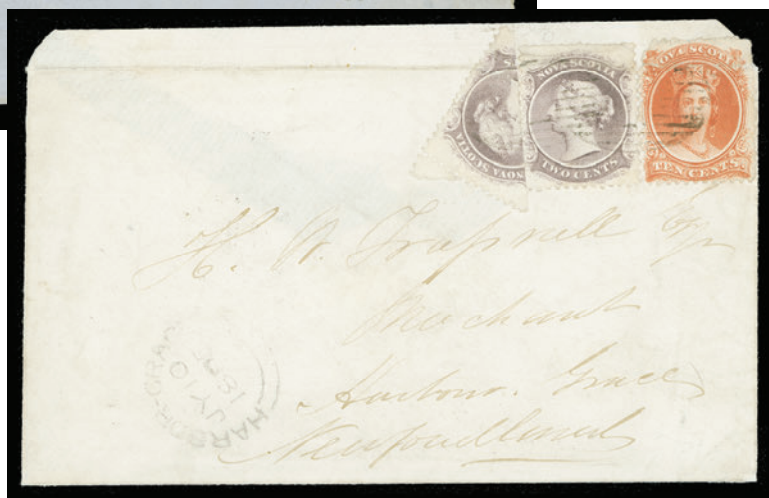 NOVA SCOTIA
NOVA SCOTIA
TWO CENTS
NOVA SCOTIA
TEN CENTS
H. W. Trapnell Esq
Merchant
Harbour Grace
Newfoundland
HARBOR-GRAC
JY 10